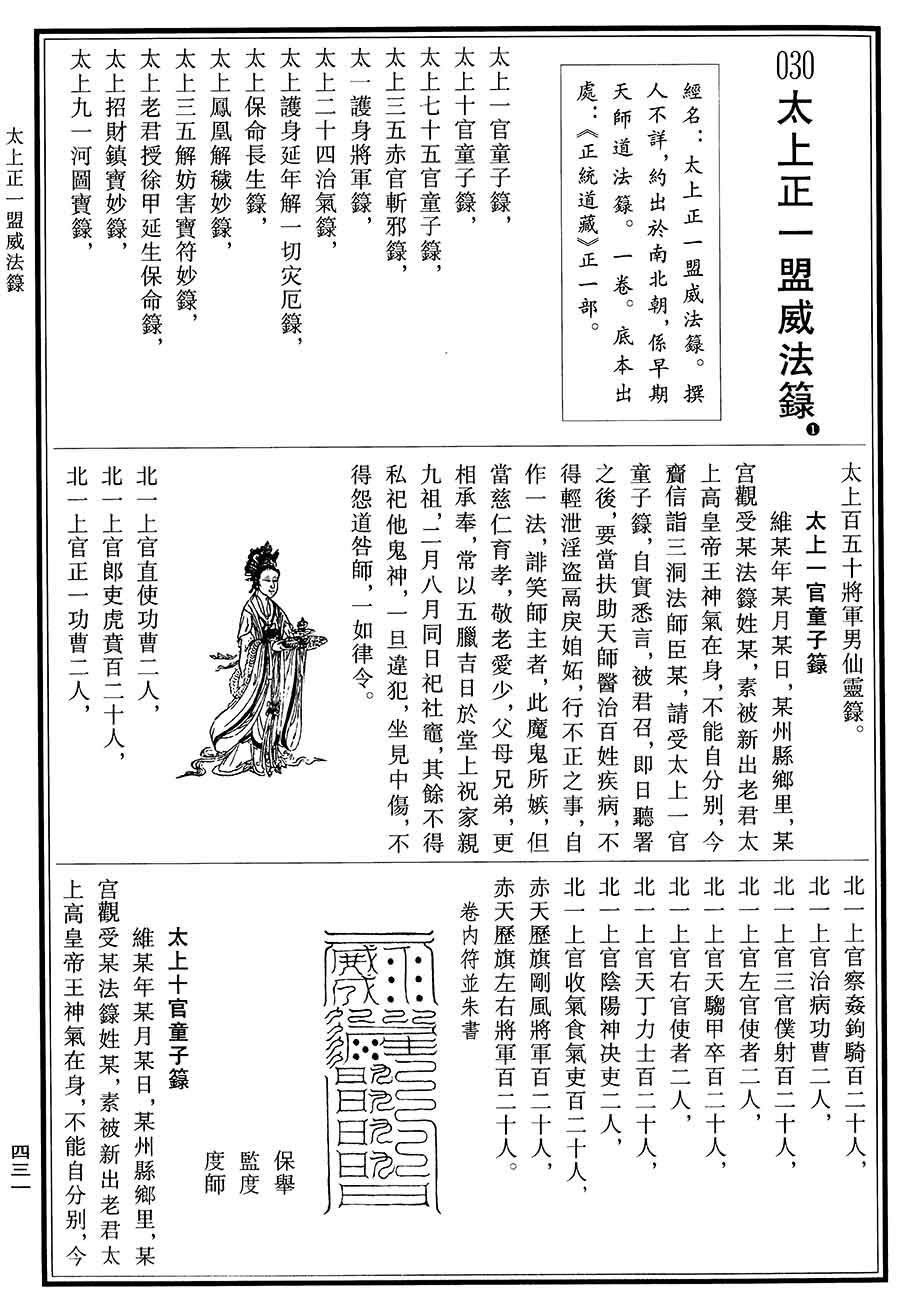 030太上正一盟威法籙❶
經名：太上正一盟威法籙。撰
人不詳，約出於南北朝，係早期
天師道法籙。一卷。底本出
處：《正統道藏》正一部。
太上一官童子籙，
太上十官童子籙，
太上七十五官童子籙，
太上三五赤官斬邪籙，
太一護身將軍籙，
太上二十四治氣籙，
太上護身延年解一切灾厄籙，
太上保命長生籙，
太上鳳凰解穢妙籙，
太上三五解妨害寶符妙籙，
太上老君授徐甲延生保命籙，
太上招財鎮寶妙籙，
太上九一河圖寶籙，
太上百五十將軍男仙靈籙。
太上一官童子籙
維某年某月某日，某州縣鄉里，某
宫觀受某法籙姓某，素被新出老君太
上高皇帝王神氣在身，不能自分别，今
齎信詣三洞法師臣某，請受太上一官
童子籙，自實悉言，被君召，即日聽署
之後，要當扶助天師醫治百姓疾病，不
得輕泄淫盜鬲戾妲妬，行不正之事，自
作一法，誹笑師主者，此魔鬼所嫉，但
當慈仁育孝，敬老愛少，父母兄弟，更
相承奉，常以五臘吉日於堂上祝家親
九祖，二月八月同日祀社竈，其餘不得
私祀他鬼神，一旦違犯，坐見中傷，不
得怨道咎師，一如律令。
北一上官直使功曹二人，
北一上官郎吏虎賁百二十人，
北一上官正一功曹二人，
北一上官察姦鉤騎百二十人，
北一上官治病功曹二人，
北一上官三官僕射百二十人，
北一上官左官使者二人，
北一上官天騶甲卒百二十人，
北一上官右官使者二人，
北一上官天丁力士百二十人，
北一上官陰陽神决吏二人，
北一上官收氣食氣吏百二十人，
赤天歷旗剛風將軍百二十人，
赤天歷旗左右將軍百二十人。
卷内符並朱書
保舉
監度
度師
太上十官童子籙
維某年某月某日，某州縣鄉里，某
宫觀受某法籙姓某，素被新出老君太
上高皇帝王神氣在身，不能自分别，今
太上正一盟威法籙
四三一